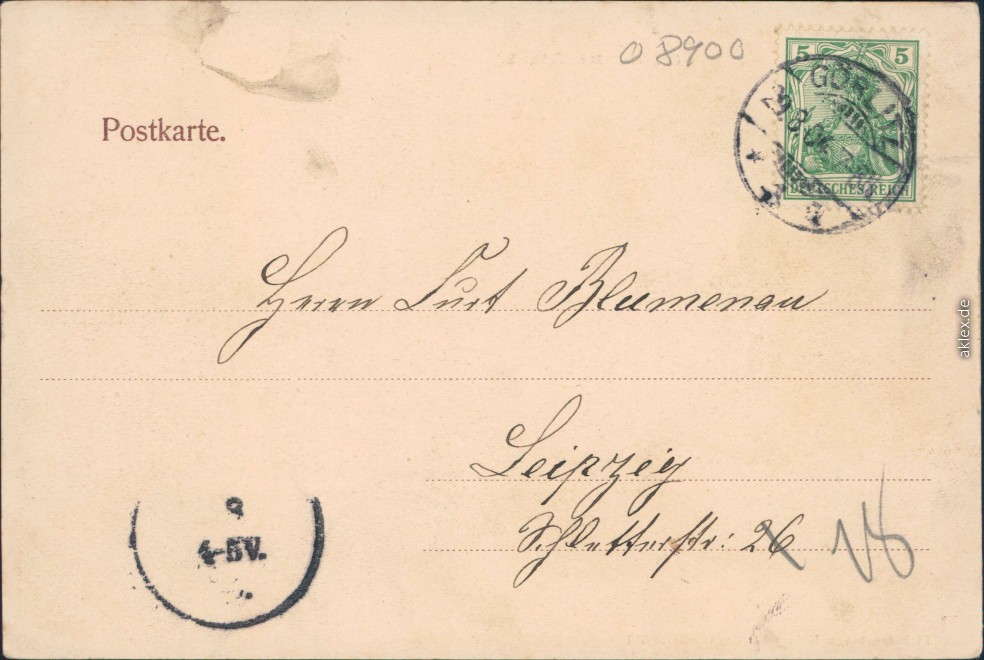 08900
5 5
GÖRLITZ
DEUTSCHES REICH
Postkarte.
Herrn Curt Blumenau
Leipzig
Schletterstr: 26 18
8
4-5V.
aklex.de